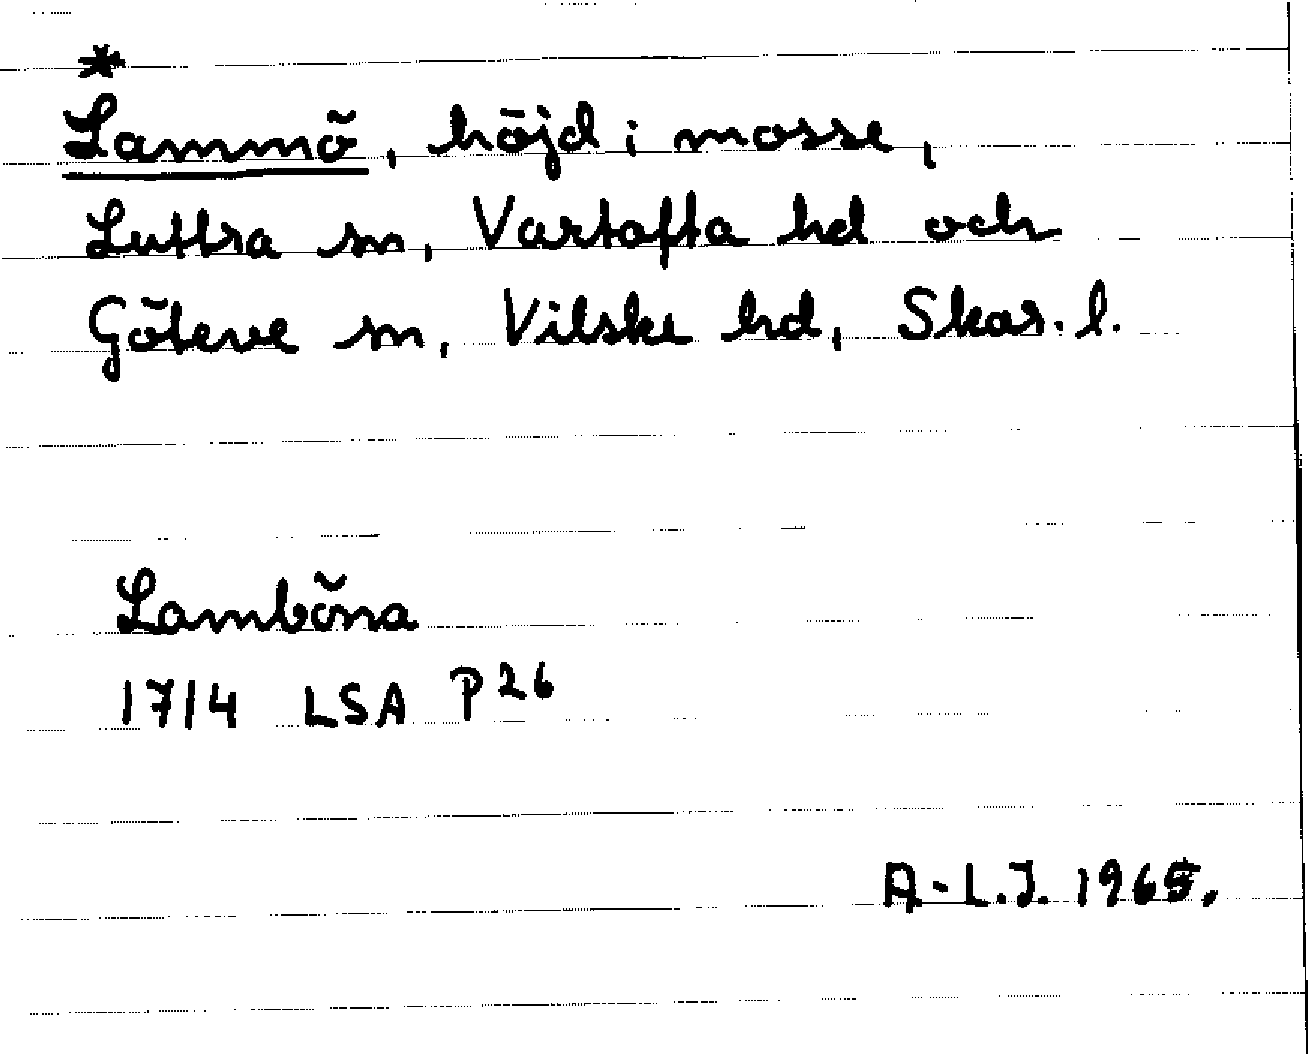 *
Lammö, höjd i mosse,
Luttra sn, Vartofta hd och
Göteve sn, Vilske hd, Skar. l.
Lambõna
1714 LSA P26
A-L.J. 1965.